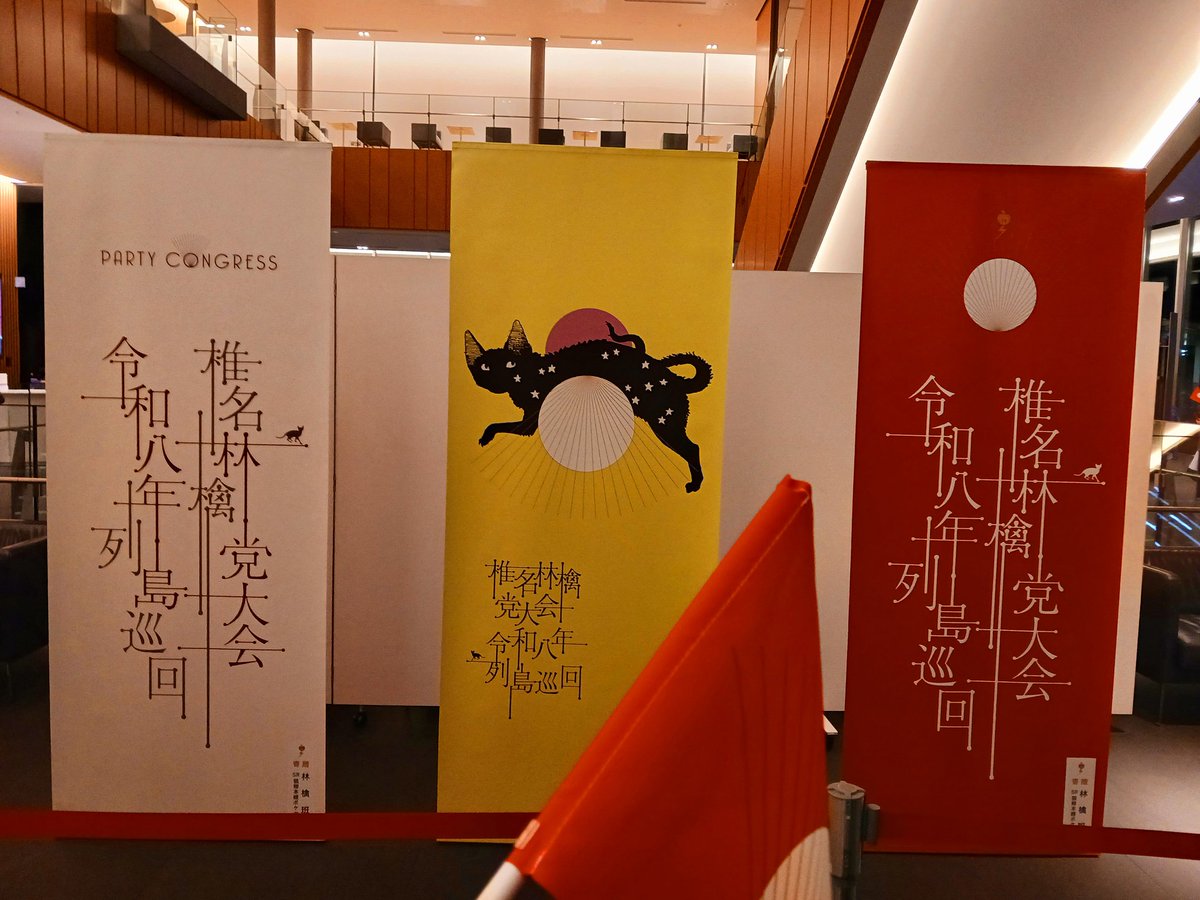 PARTY CONGRESS
椎名林檎党大会
令和八年列島巡回
椎名林檎
党大会
令和八年
列島巡回
椎名林檎党大会
令和八年列島巡回